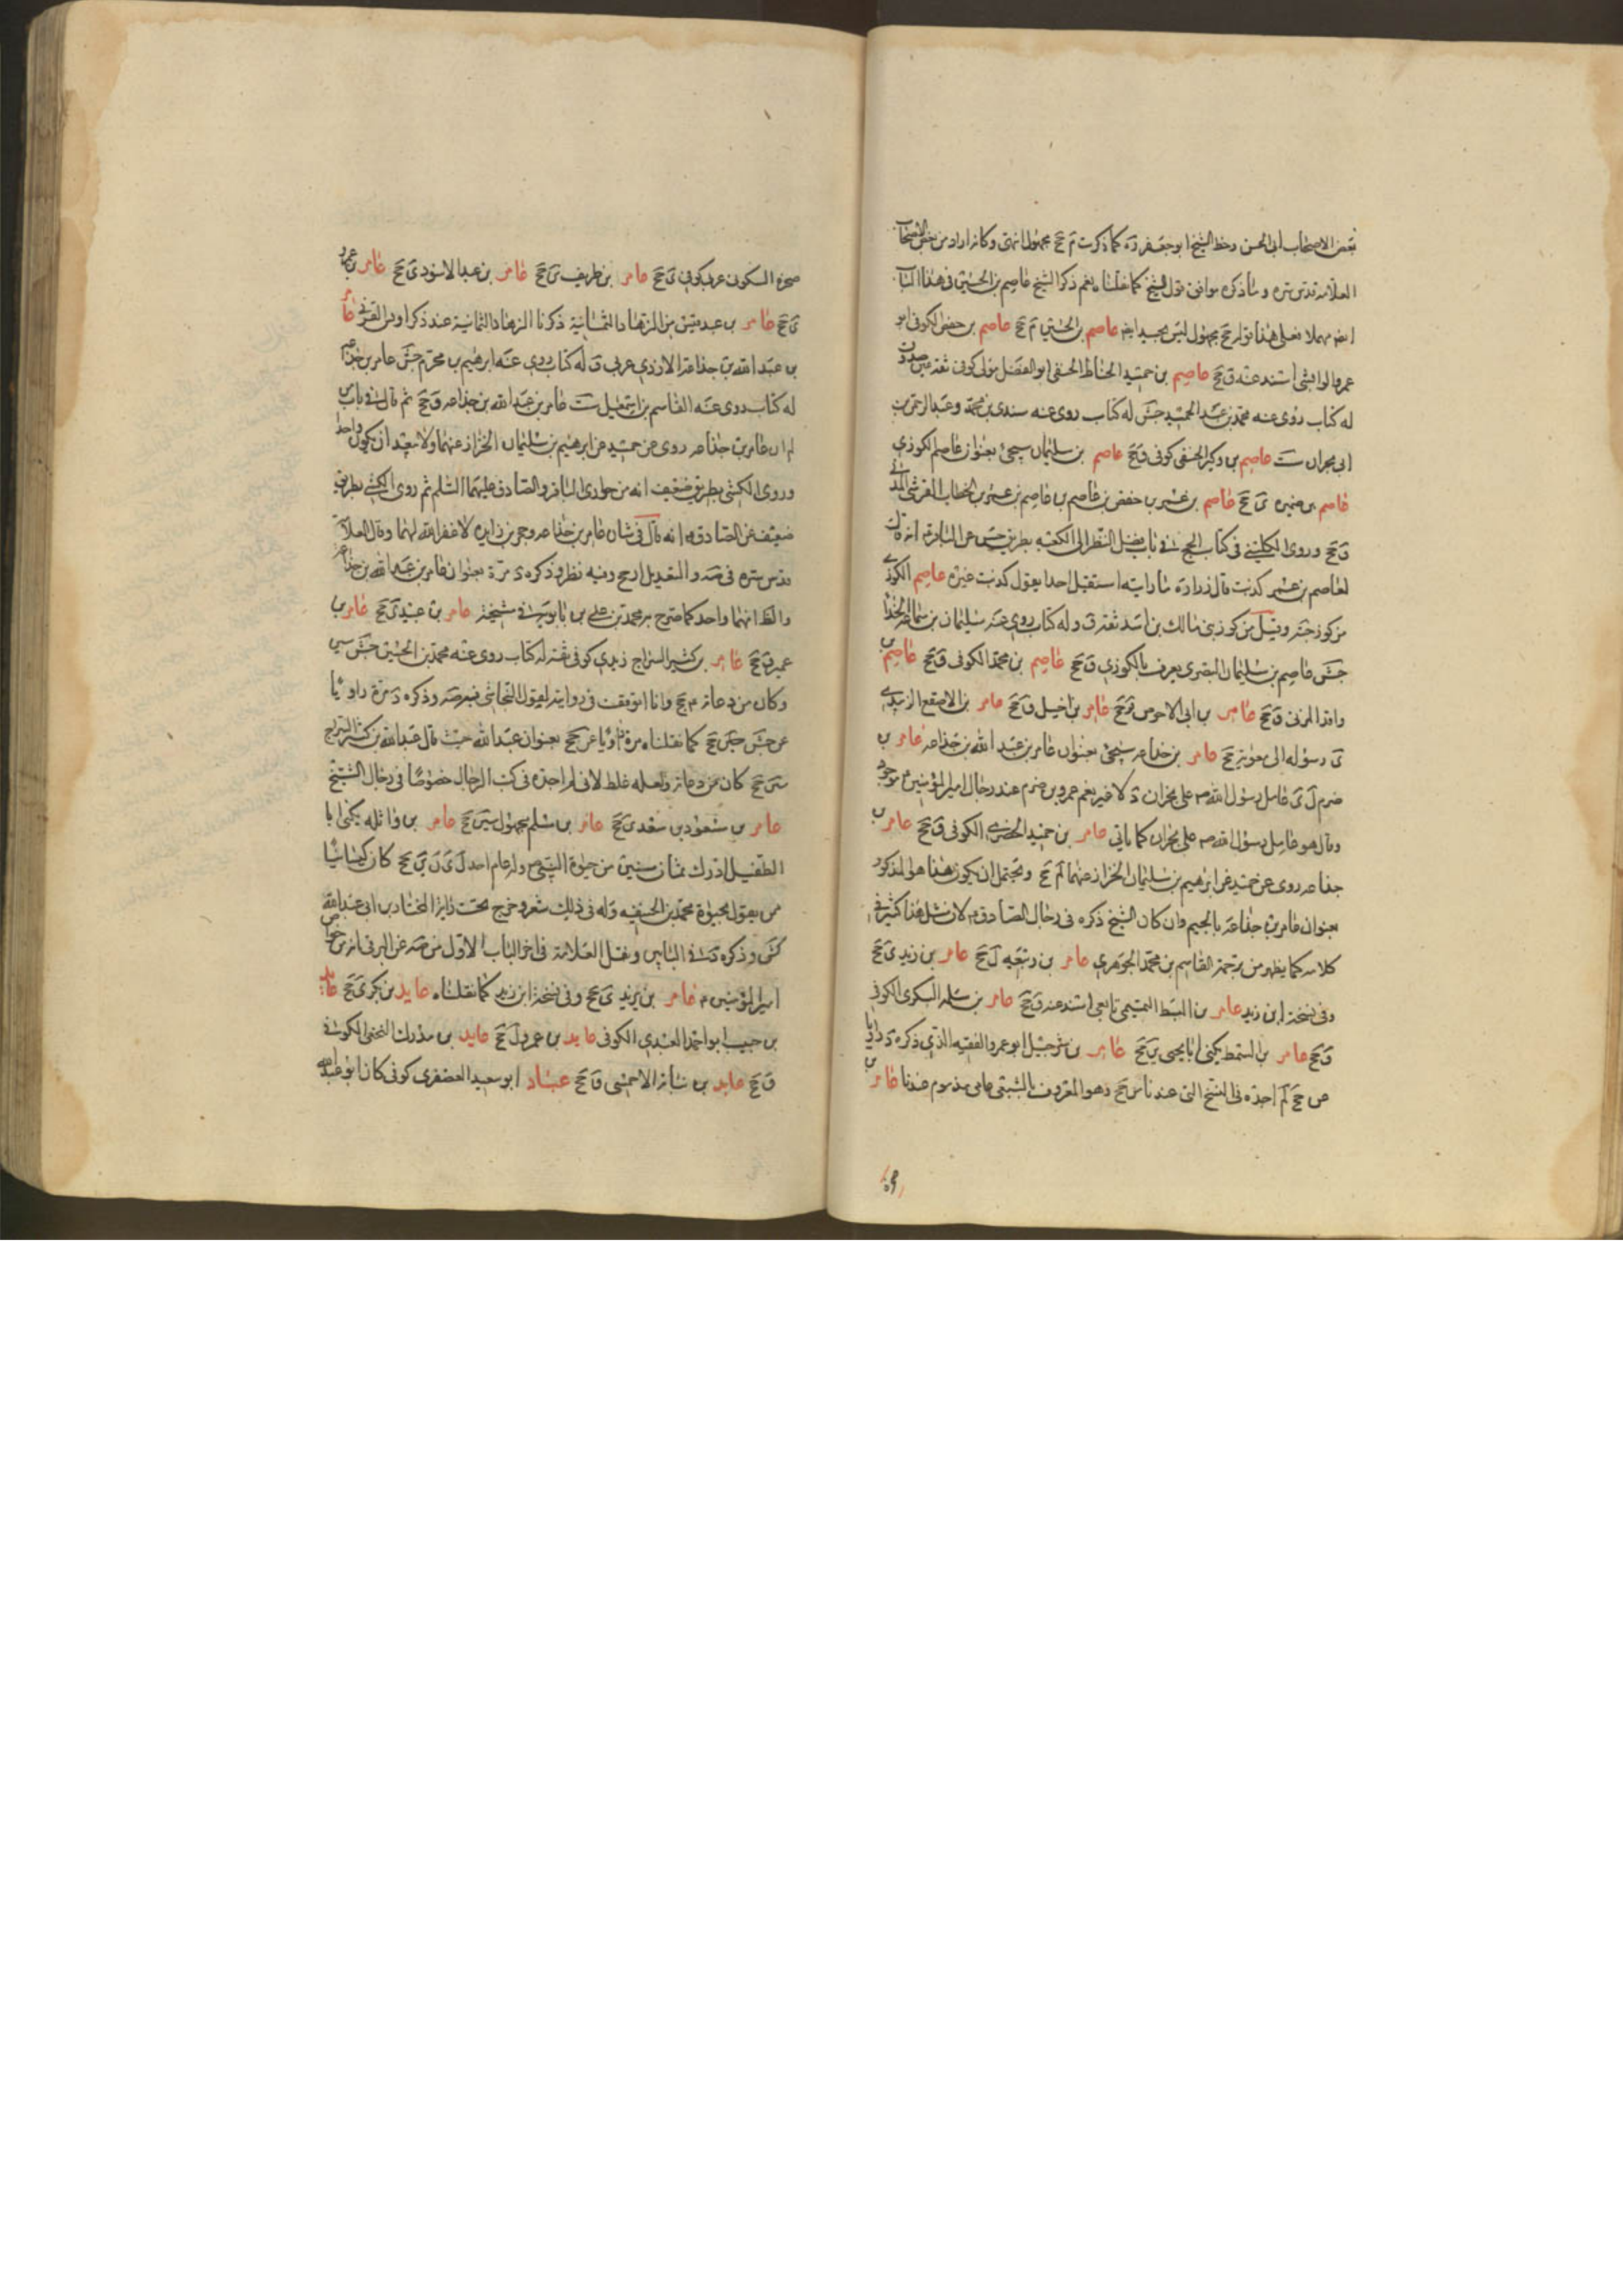 بعض الاصحاب ابى الحسن وخط الشيخ ابو جعفر ره كما ذكرت م جخ مجهول انتهى وكانه اراد من بعض الاصحاب
العلامه قدس سره وما ذكره موافق لقول الشيخ كما نقلنا نعم ذكر الشيخ عاصم بن الحسين فى هذا الباب
ايضه مهملا فعلى هذا قوله جخ مجهول ليس بجيد ايضه عاصم بن الحسين م جخ عاصم بن حفص الكوفى ابو
عمرو الوابشى اسند عنه ق جخ عاصم بن حميد الحناط الحنفى ابو الفضل مولى كوفى ثقة عين صدوق
له كتاب روى عنه محمد بن عبد الحميد جش له كتاب روى عنه سندى بن محمد وعبد الرحمن بن
ابى نجران ست عاصم بن ذكير الحنفى كوفى ق جخ عاصم بن سليمان سيجئ بعنوان عاصم الكوزى
عاصم بن ضمره ى جخ عاصم بن عمر بن حفص بن عاصم بن عاصم بن عمر بن الخطاب القرشى المدنى
ق جخ وروى الكلينى فى كتاب الحج فى باب فضل النظر الى الكعبه بطريق حسن عن الباقر ع انه قال
لعاصم بن عمر كذبت قال زراره ما رايته استقبل احدا بقول كذبت غيره عاصم الكوزى
من كوز ضبه وقيل من كوز بنى مالك بن اسد ثقة ق وله كتاب روى عنه سليمان بن سماعه الحذا
جش عاصم بن سليمان البصرى يعرف بالكوزى ق جخ عاصم بن محمد الكوفى ق جخ عاصم بن
واقد المزنى ق جخ عامر بن ابى الاحوص ق جخ عامر بن اخيل ق جخ عامر بن الاصقع الزبيدى
ى رسوله الى معويه جخ عامر بن خداعه سيجئ بعنوان عامر بن عبد الله بن جذاعه عامر بن
حزم ل ى عامل رسول الله ص على نجران د لا خير نعم عمرو بن حزم عند رجال امير المؤمنين ع موجود
وقال هو عامل رسول الله ص على نجران كما ياتى عامر بن حميد الحضرمى الكوفى ق جخ عامر بن
جذاعه روى عن حميد عن ابرهيم بن سليمان الخزاز عنهما لم جخ ويحتمل ان يكون هذا هو المذكور
بعنوان عامر بن جذاعه بالجيم وان كان الشيخ ذكره فى رجال الصادق ع لان مثل هذا كثير فى
كلامه كما يظهر من ترجمة القاسم بن محمد الجوهرى عامر بن ربيعه ل جخ عامر بن زيد ى جخ
وفى نسخة ابن زيد عامر بن السبط التميمى تابعى اسند عنه ق جخ عامر بن سلمه البكرى الكوفى
ق جخ عامر بن السمط يكنى ابا يحيى ين جخ عامر بن شرحيل ابو عمرو الفقيه الذى ذكره د رايا
من جخ لم اجده فى النسخ التى عندنا من جخ وهو المعروف بالشبعى عامى مذموم عندنا عامر بن
صخره السكونى عربى كوفى ى جخ عامر بن طريف ى جخ عامر بن عبد الاسود ى جخ عامر بن عمرو
ى جخ عامر بن عبد قيس من الزهاد الثمانية ذكرنا الزهاد الثمانية عند ذكر اويس القرنى عامر
بن عبد الله بن جذاعة الازدى عربى ق له كتاب روى عنه ابرهيم بن مخزم جش عامر بن جذاعه
له كتاب روى عنه القاسم بن اسمعيل ست عامر بن عبد الله بن جذاعه ق جخ ثم قال فى باب من
لم ان عامر بن جذاعه روى عن حميد عن ابرهيم بن سليمان الخزاز عنهما ولا يبعد ان يكون واحدا
وروى الكشى بطريق ضعيف انه من حوارى الباقر والصادق عليهما السلام ثم روى الكشى بطريق
ضعيف عن الصادق ع انه قال فى شان عامر بن جذاعه وحجر بن زايده لا غفر الله لهما وقال العلامة
قدس سره فى صه والتعديل ارجح وفيه نظر وذكره د مرة بعنوان عامر بن عبد الله بن جذاعه
والظ انهما واحد كما صرح به محمد بن على بن بابويه فى مشيخته عامر بن عبيد ى جخ عامر بن
عمير ق جخ عامر بن كثير السراج زيدى كوفى ثقة له كتاب روى عنه محمد بن الحسين جش سين
وكان من دعاته ع جخ وانا اتوقف فى روايته لقول النجاشى فيه صه وذكره د مرة راويا
عن جش جش جخ كما نقلناه مرة راويا عن جخ بعنوان عبد الله حيث قال عبد الله بن كثير السراج
سين جخ كان من دعاته ولعله غلط لانى لم اجده فى كتب الرجال خصوصا فى رجال الشيخ
عامر بن مسعود بن سعد ى جخ عامر بن مسلم مجهول سين جخ عامر بن واثله يكنى ابا
الطفيل ادرك ثمان سنين من حيوة النبى ص ولد عام احد ل ى ن ين جخ كان كيسانيا
ممن يقول بحيوة محمد بن الحنفيه وله فى ذلك شعر وخرج تحت راية المختار بن ابى عبيد الله
كش وذكره د فى البابين ونقل العلامة فى اخر الباب الاول من صه عن البرقى انه من خواص
امير المؤمنين ع عامر بن يزيد ى جخ وفى نسخة ابن زيد كما نقلناه عايذ بن بكر ى جخ عايذ
بن حبيب ابو احمد العبدى الكوفى عايذ بن عمرو ل جخ عايذ بن مدرك النخعى الكوفى
ق جخ عايذ بن نباته الاحمسى ق جخ عباد ابو سعيد العصفرى كوفى كان ابو عبد الله